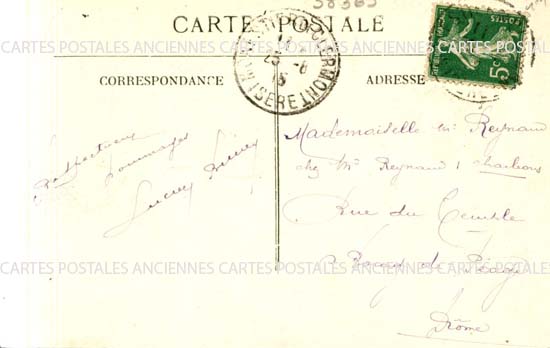 58365
CARTE POSTALE
CARTES POSTALES ANCIENNES CARTES POSTALES ANCIENNES CARTES POSTALES ANCIENNES
CORRESPONDANCE
ADRESSE
POSTES
5c
Respectueux
hommages
Mademoiselle M. Reynaud
chez Mr Reynaud, charbons
Rue du Temple
Bourg de Péage
Drôme
CARTES POSTALES ANCIENNES CARTES POSTALES ANCIENNES CARTES POSTALES ANCIENNES